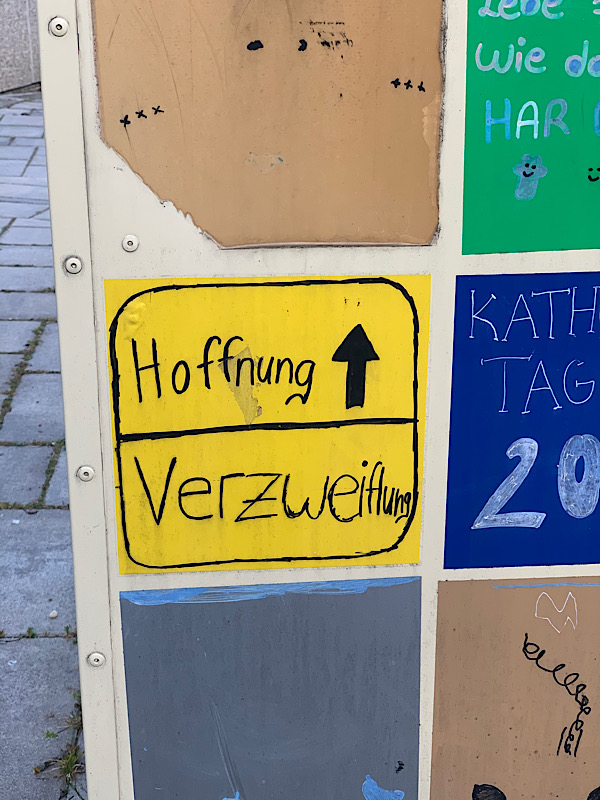 Lebe
wie
HAR
Hoffnung
Verzweiflung
KATH
TAG
20